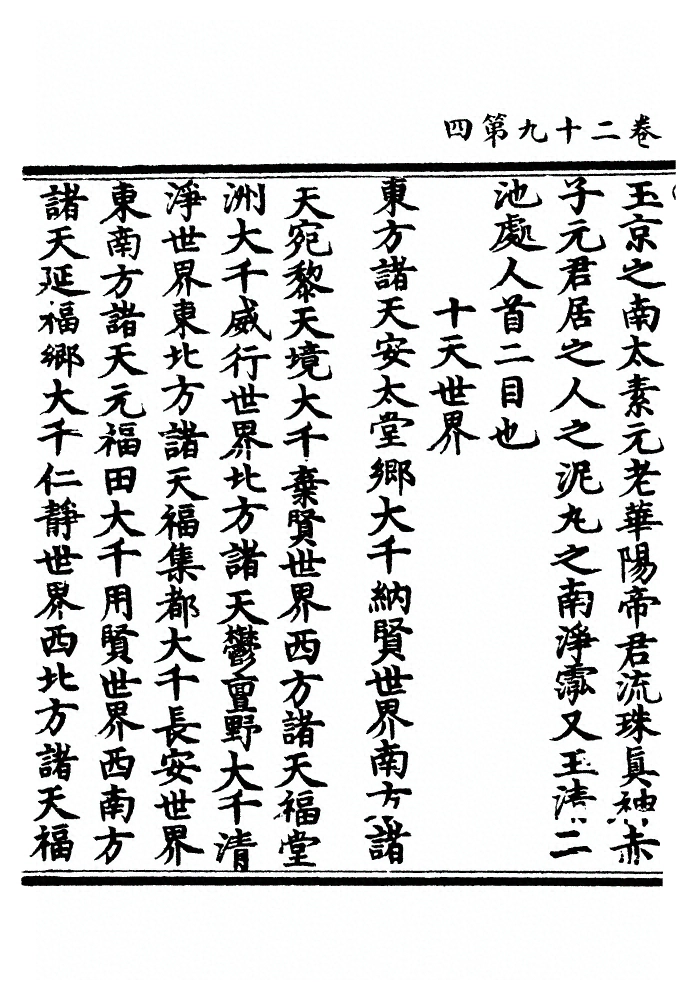 卷二十九第四
玉京之南太素元老華陽帝君流珠真神赤
子元君居之人之泥丸之南淨霐又玉清二
池處人首二目也
十天世界
東方諸天安太堂鄉大千納賢世界南方諸
天宛黎天境大千棄賢世界西方諸天福堂
洲大千威行世界北方諸天鬱亶野大千清
淨世界東北方諸天福集都大千長安世界
東南方諸天元福田大千用賢世界西南方
諸天延福鄉大千仁靜世界西北方諸天福